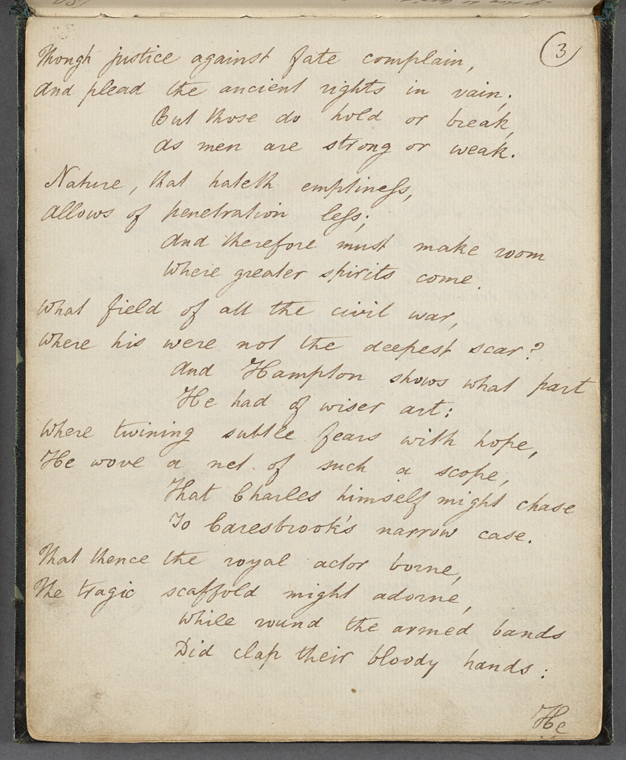 3
Though justice against fate complain,
And plead the ancient rights in vain;
But those do hold or break,
As men are strong or weak.
Nature, that hateth emptiness,
Allows of penetration less;
And therefore must make room
Where greater spirits come.
What field of all the civil war,
Where his were not the deepest scar?
And Hampton shows what part
He had of wiser art:
Where twining subtle fears with hope,
He wove a net of such a scope,
That Charles himself might chase
To Caresbrook's narrow case.
That thence the royal actor borne,
The tragic scaffold might adorne,
While round the armed bands
Did clap their bloody hands:
He